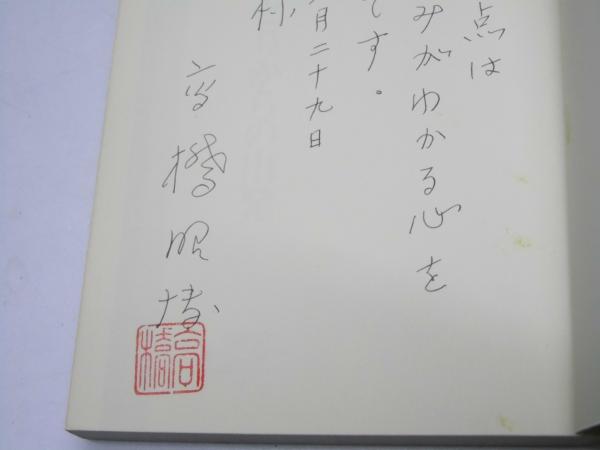 点は
みがわかる心を
です。
月二十九日
様
高橋昭
高橋